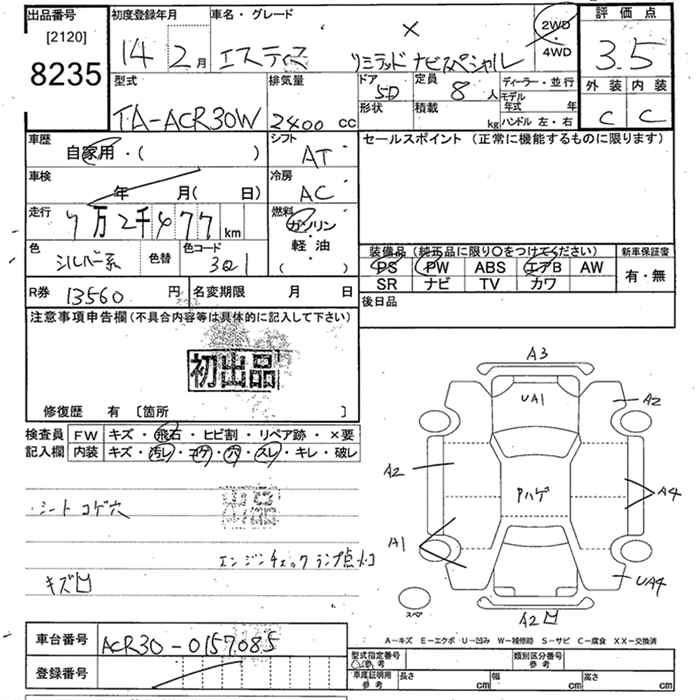 出品番号 初度登録年月 車名・グレード 評価点
[2120]
8235
14 2月 エスティマ リミテッド ナビスペシャル × 2WD・4WD 3.5
型式 排気量 ドア 定員 ディーラー・並行 外装 内装
5D 8人 モデル年式 年
形状 積載 kg ハンドル 左・右
TA-ACR30W 2400cc C C
車歴 シフト セールスポイント (正常に機能するものに限ります)
自家用・( ) AT
車検 冷房
年 月( 日) AC
走行 燃料
7万2千477km ガソリン・軽油( )
色 色替 色コード
シルバー系 321
装備品 (純正品に限り○をつけてください) 新車保証書
PS PW ABS エアB AW 有・無
SR ナビ TV カワ
R券 13560円 名変期限 月 日 後日品
注意事項申告欄(不具合内容等は具体的に記入して下さい)
初出品
修復歴 有 [箇所 ]
検査員 FW キズ・飛石・ヒビ割・リペア跡・×要
記入欄 内装 キズ・汚レ・コゲ・穴・スレ・キレ・破レ
A3
UA1
A2
A2
Pハゲ
A4
A1
UA4
スペア
A2凹
・シート コゲ穴
出品
エンジンチェックランプ点
キズ凹
A-キズ E-エクボ U-凹み W-補修跡 S-サビ C-腐食 XX-交換済
車台番号 ACR30-0157085
登録番号
型式指定番号 類別区分番号
参考 参考
車庫証明用 参考 長さ cm 幅 cm 高さ cm